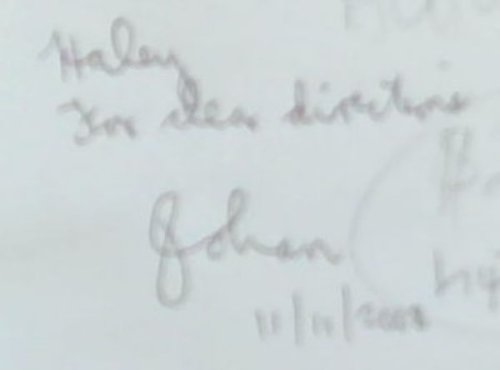 Haley
For clear directions
Johan
11/11/2008